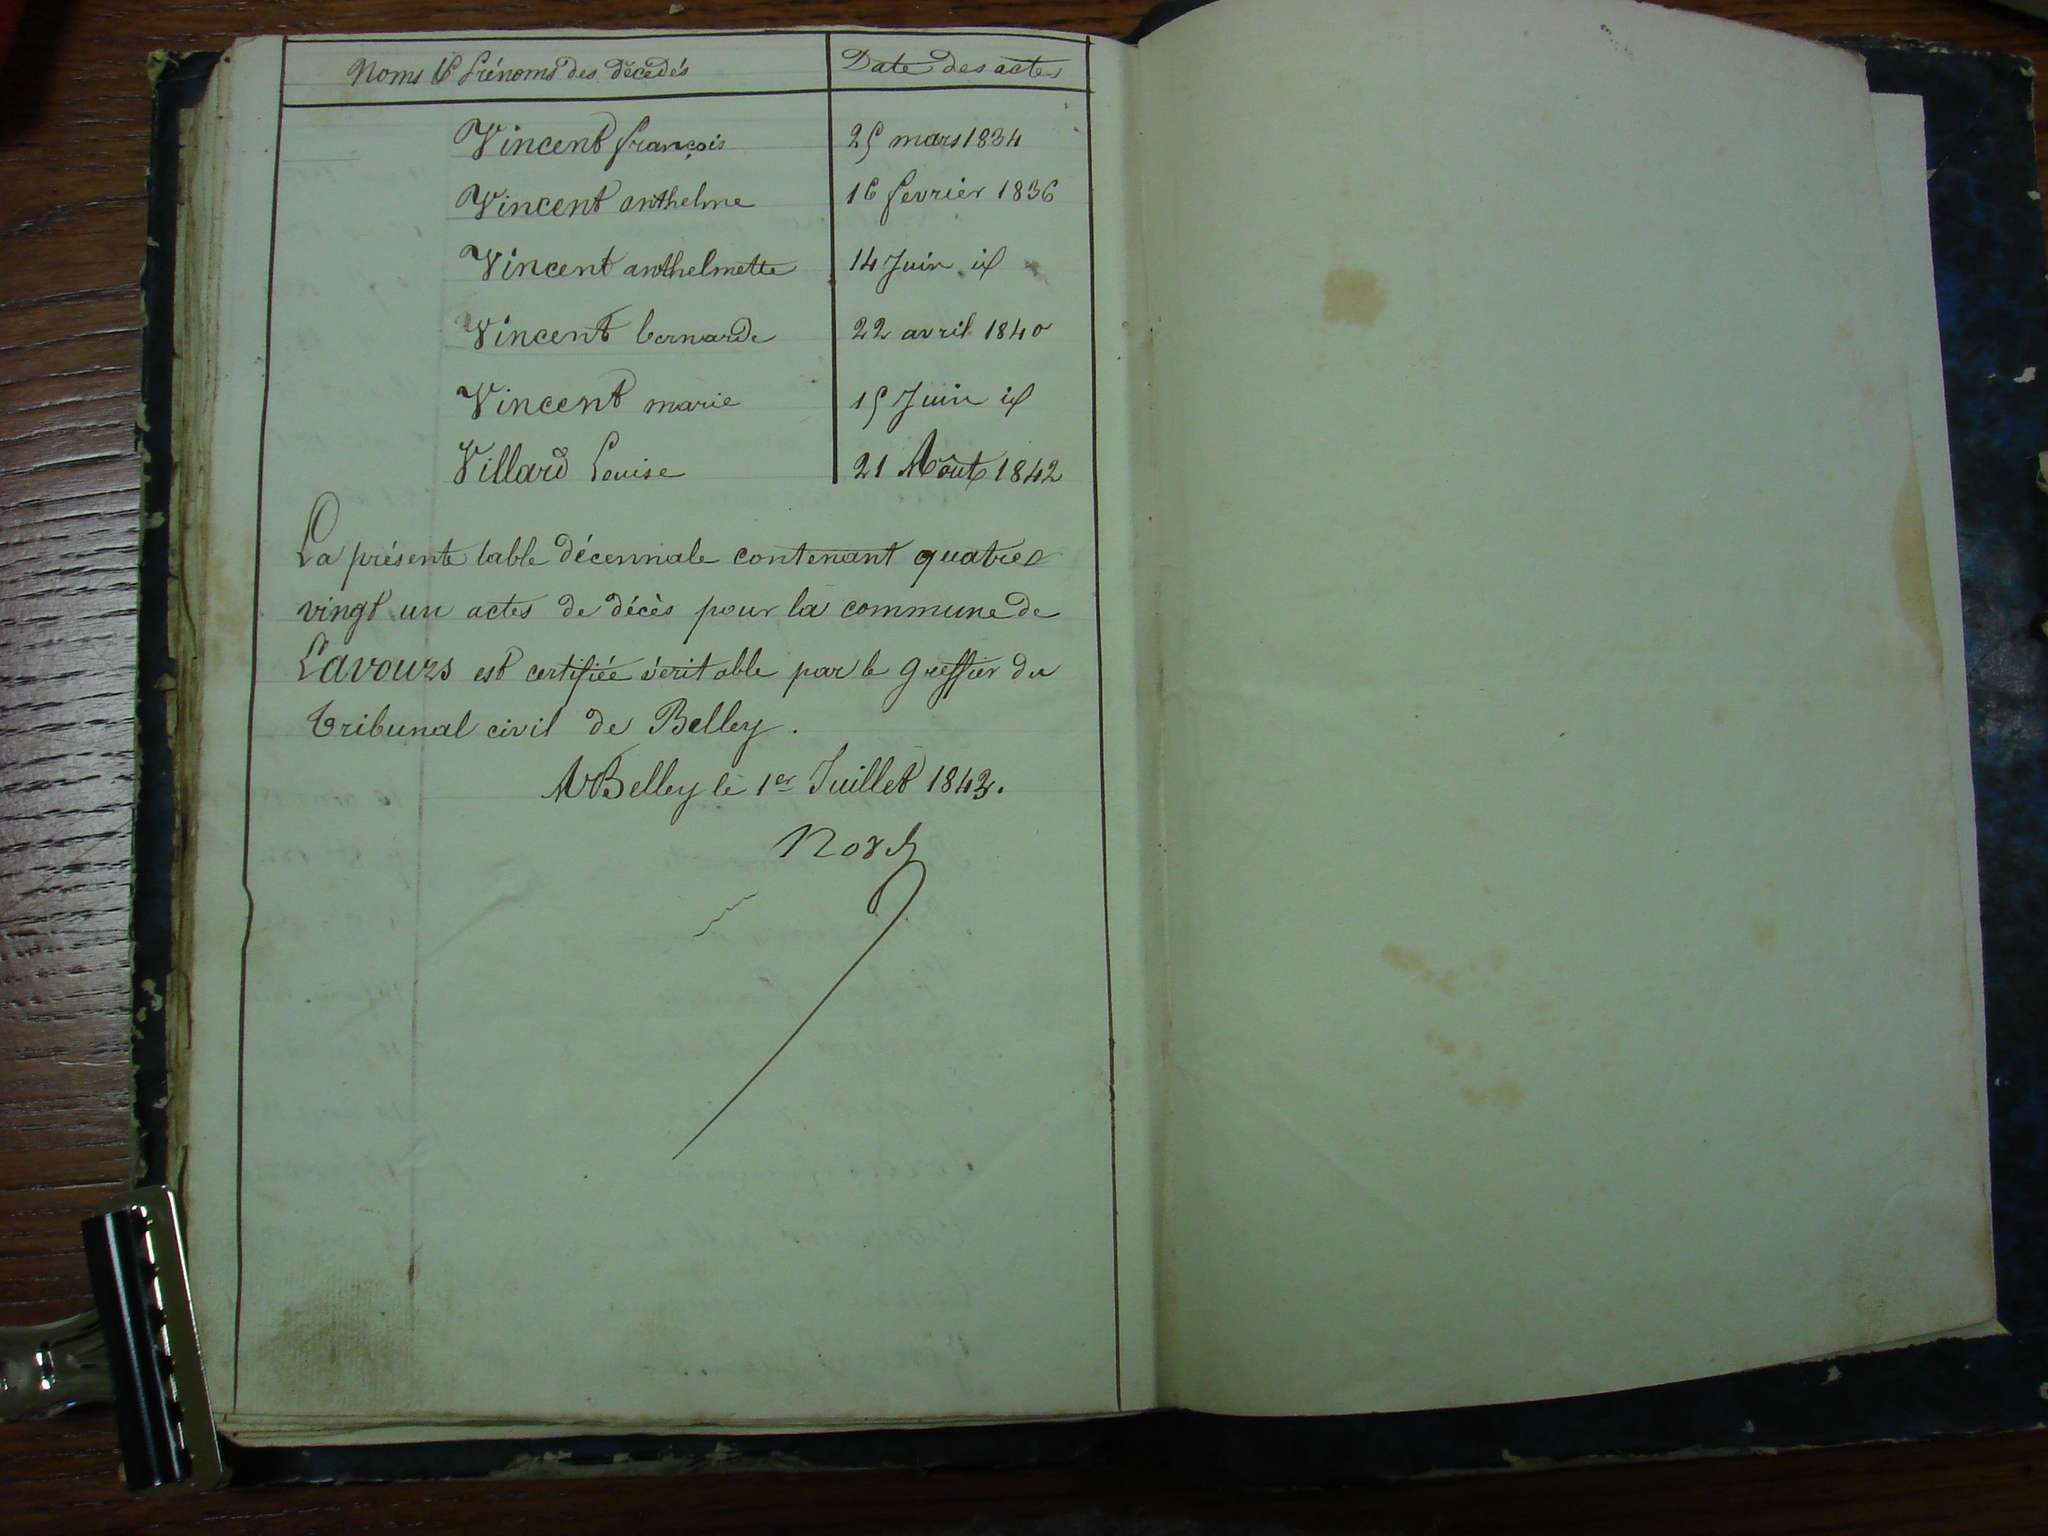 Noms & Prénoms des décédés Date des actes
Vincent françois 25 mars 1834
Vincent anthelme 16 fevrier 1836
Vincent anthelmette 14 Juin id
Vincent bernarde 22 avril 1840
Vincent marie 15 Juin id
Villard Louise 21 Août 1842
La présente table décennale contenant quatre
vingt un actes de décès pour la commune de
Lavours est certifiée véritable par le greffier du
tribunal civil de Belley.
A Belley le 1er Juillet 1843.